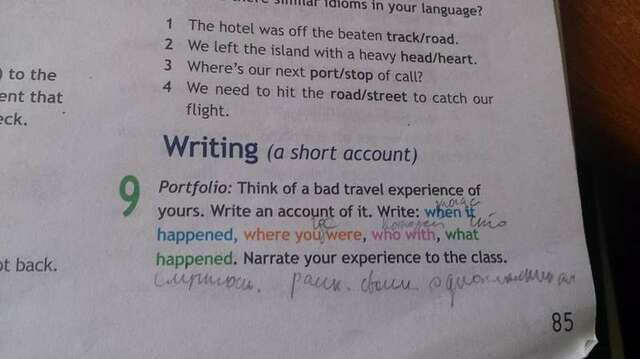 there similar idioms in your language?
1 The hotel was off the beaten track/road.
2 We left the island with a heavy head/heart.
) to the
3 Where's our next port/stop of call?
ent that
4 We need to hit the road/street to catch our
eck.
flight.
Writing (a short account)
9 Portfolio: Think of a bad travel experience of
yours. Write an account of it. Write: when it
happened, where you were, who with, what
ot back.
happened. Narrate your experience to the class.
85